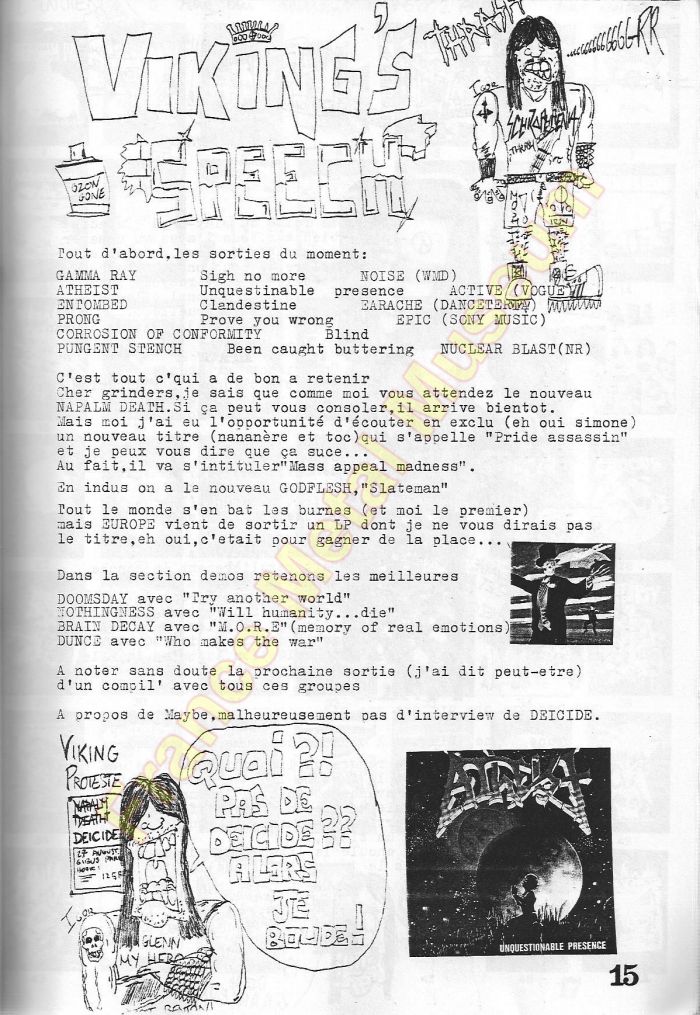 VIKING'S
SPEECH
THRASH
...GGGGGGGGGRR
OZON
GONE
Igor
SCHIZOPHRENIA
THRASH
Tout d'abord,les sorties du moment:
GAMMA RAY Sigh no more NOISE (WMD)
ATHEIST Unquestinable presence ACTIVE (VOGUE)
ENTOMBED Clandestine EARACHE (DANCETERIA)
PRONG Prove you wrong EPIC (SONY MUSIC)
CORROSION OF CONFORMITY Blind
PUNGENT STENCH Been caught buttering NUCLEAR BLAST(NR)
C'est tout c'qui a de bon a retenir
Cher grinders,je sais que comme moi vous attendez le nouveau
NAPALM DEATH.Si ça peut vous consoler,il arrive bientot.
Mais moi j'ai eu l'opportunité d'écouter en exclu (eh oui simone)
un nouveau titre (nananère et toc)qui s'appelle "Pride assassin"
et je peux vous dire que ça suce...
Au fait,il va s'intituler"Mass appeal madness".
En indus on a le nouveau GODFLESH,"Slateman"
Tout le monde s'en bat les burnes (et moi le premier)
mais EUROPE vient de sortir un LP dont je ne vous dirais pas
le titre,eh oui,c'etait pour gagner de la place...
Dans la section demos retenons les meilleures
DOOMSDAY avec "Try another world"
NOTHINGNESS avec "Will humanity...die"
BRAIN DECAY avec "M.O.R.E"(memory of real emotions)
DUNCE avec "Who makes the war"
A noter sans doute la prochaine sortie (j'ai dit peut-etre)
d'un compil' avec tous ces groupes
A propos de Maybe,malheureusement pas d'interview de DEICIDE.
VIKING
PROTESTE
NAPALM
DEATH
DEICIDE
27 AUGUST
Igor
GLENN
MY HERO
QUOI?!
PAS DE
DEICIDE??
ALORS
JE
BOUDE!
ATHEIST
UNQUESTIONABLE PRESENCE
15
France Metal Museum